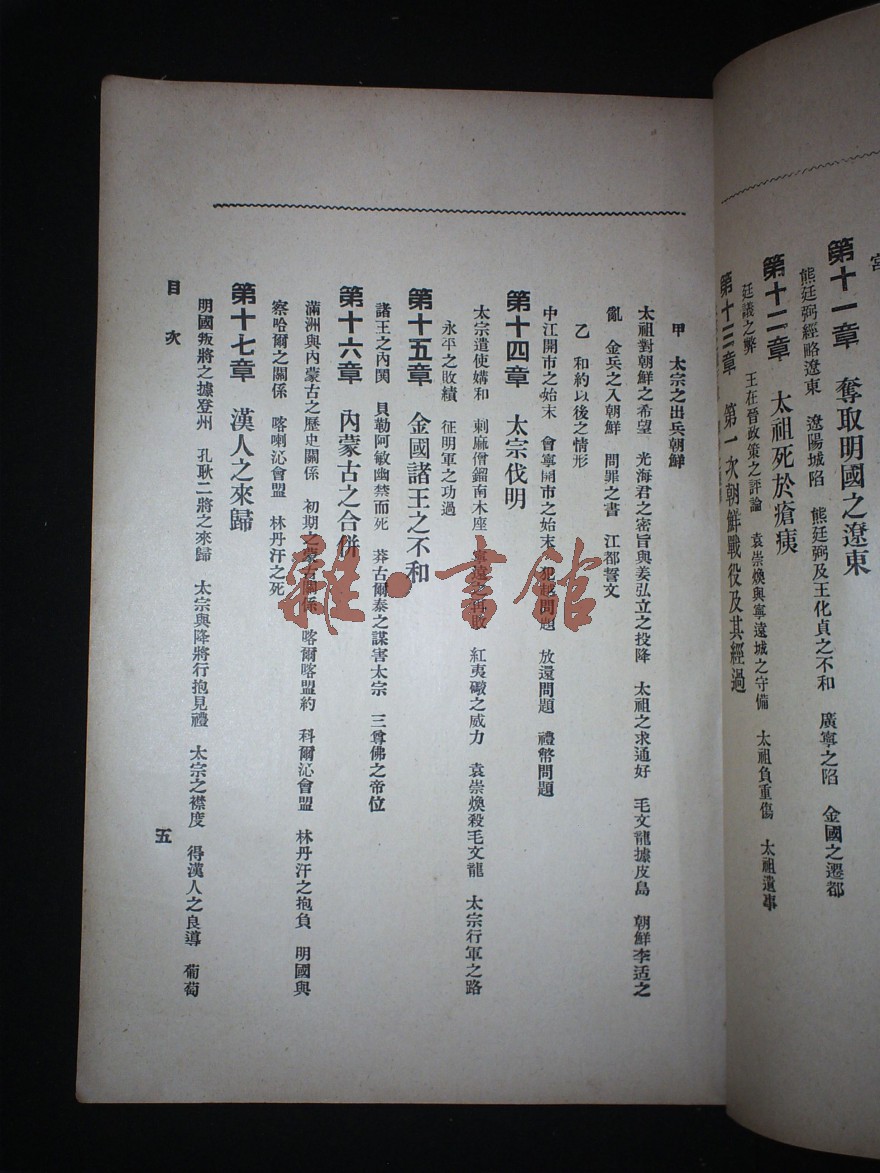 第十一章　奪取明國之遼東
熊廷弼經略遼東　遼陽城陷　熊廷弼及王化貞之不和　廣寧之陷　金國之遷都
第十二章　太祖死於瘡痍
廷議之弊　王在晉政策之評論　袁崇煥與寧遠城之守備　太祖負重傷　太祖遺事
第十三章　第一次朝鮮戰役及其經過
甲　太宗之出兵朝鮮
太祖對朝鮮之希望　光海君之密旨與姜弘立之投降　太祖之求通好　毛文龍據皮島　朝鮮李适之
亂　金兵之入朝鮮　問罪之書　江都誓文
乙　和約以後之情形
中江開市之始末　會寧開市之始末　犯越問題　放還問題　禮幣問題
第十四章　太宗伐明
太宗遣使媾和　刺麻僧鎦南木座　寧遠之再敗　紅夷礮之威力　袁崇煥殺毛文龍　太宗行軍之路
永平之敗績　征明軍之功過
第十五章　金國諸王之不和
諸王之內鬨　貝勒阿敏幽禁而死　莽古爾泰之謀害太宗　三尊佛之帝位
第十六章　內蒙古之合併
滿洲與內蒙古之歷史關係　初期之蒙古關係　喀爾喀盟約　科爾沁會盟　林丹汗之抱負　明國與
察哈爾之關係　喀喇沁會盟　林丹汗之死
第十七章　漢人之來歸
明國叛將之據登州　孔耿二將之來歸　太宗與降將行抱見禮　太宗之襟度　得漢人之良導　葡萄
目次
五
雜·書館